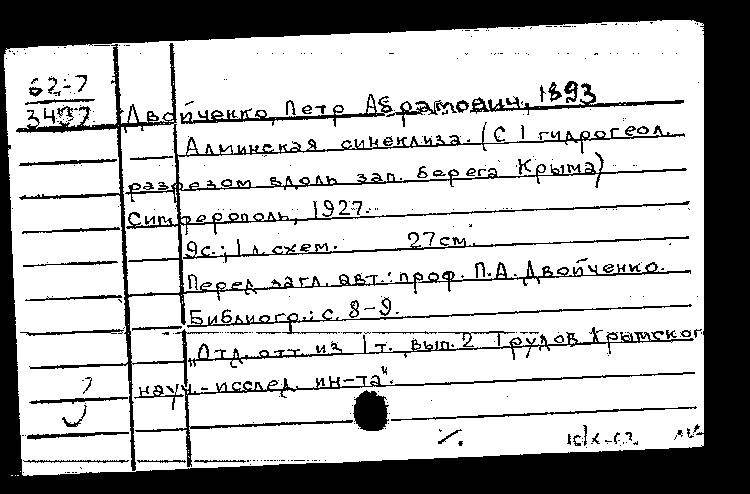 62-7
Двойченко, Петр Абрамович, 1893
Алминская синеклиза. (С 1 гидрогеол.
разрезом вдоль зап. берега Крыма)
Симферополь, 1927.
9с.; 1 л. схем. 27см.
Перед загл. авт.: проф. П.А. Двойченко.
Библиогр.: с. 8-9.
„Отд. отт. из 1 т. вып. 2 Трудов Крымског
науч.-исслед. ин-та".